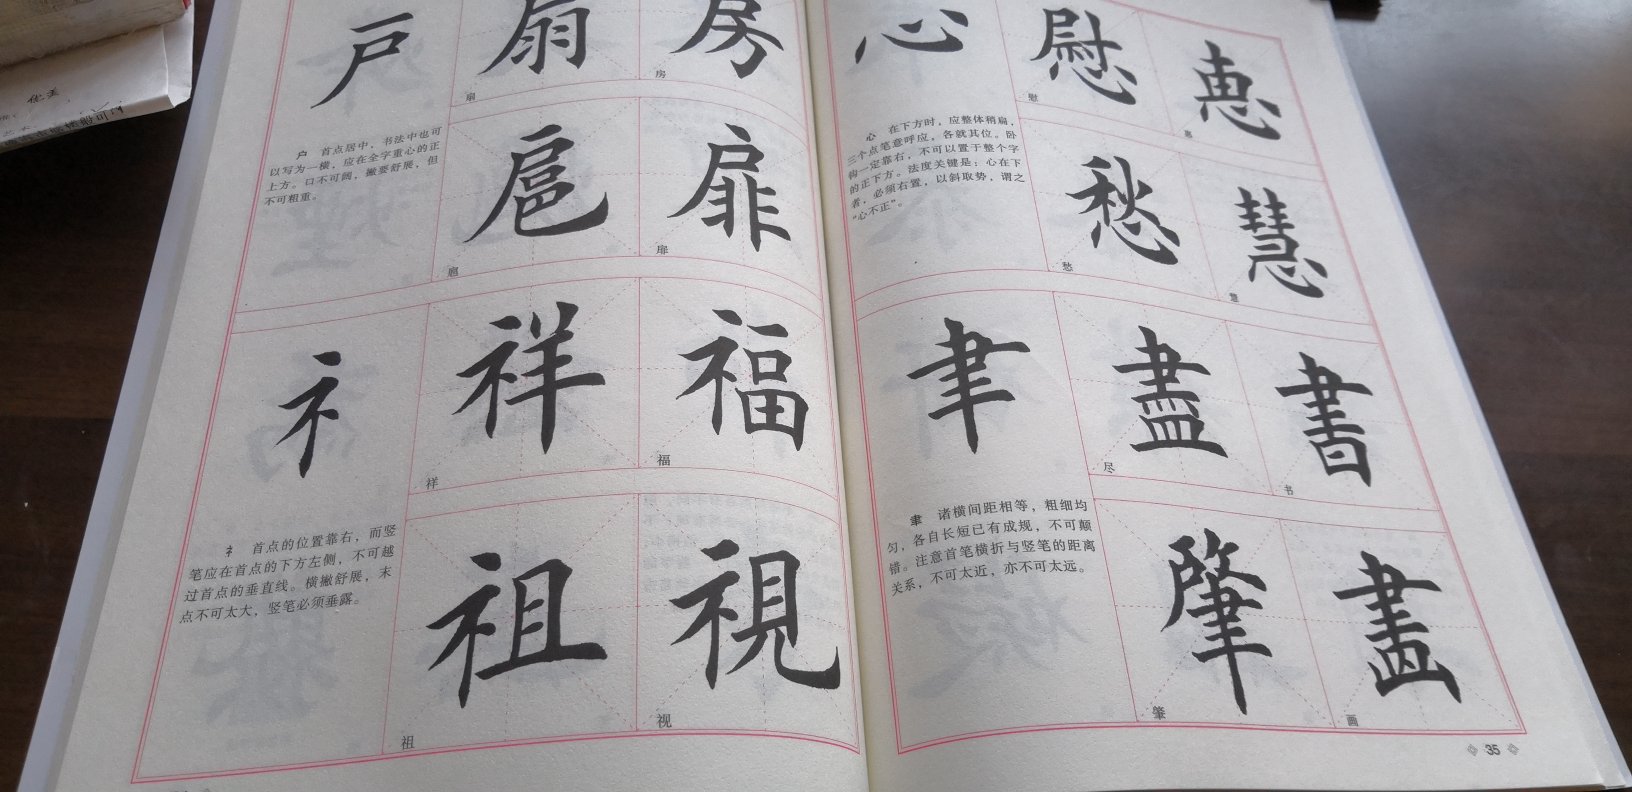 户 扇 房
扇 房
户 首点居中,书法中也可
以写为一横,应在全字重心的正
上方。口不可阔,撇要舒展,但
不可粗重。
扈 扉
扈 扉
礻 祥 福
祥 福
礻 首点的位置靠右,而竖
笔应在首点的下方左侧,不可越
过首点的垂直线。横撇舒展,末
点不可太大,竖笔必须垂露。
祖 視
祖 视
心 慰 惠
慰 惠
心 在下方时,应整体稍扁,
三个点笔意呼应,各就其位。卧
钩一定靠右,不可以置于整个字
的正下方。法度关键是:心在下
者,必须右置,以斜取势,谓之
“心不正”。
愁 慧
愁 慧
聿 盡 書
尽 书
聿 诸横间距相等,粗细均
匀,各自长短已有成规,不可颠
错。注意首笔横折与竖笔的距离
关系,不可太近,亦不可太远。
肇 畫
肇 画
35